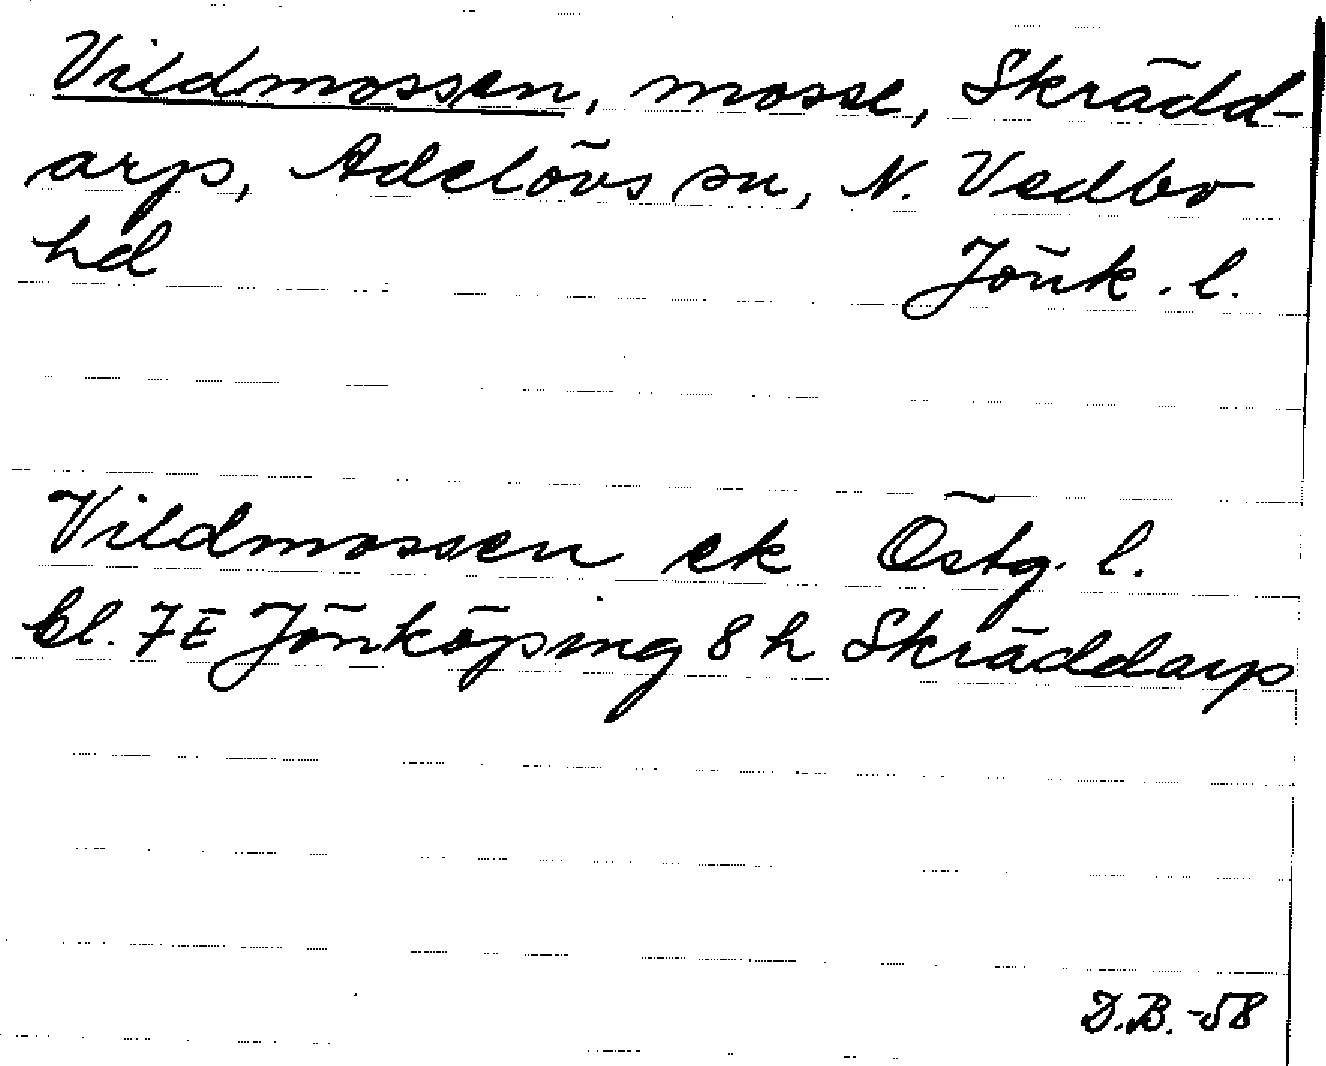 Vildmossen, mosse, Skrädd-
arp, Adelövs sn, N. Vedbo
hd Jönk. l.
Vildmossen ek Östg. l.
bl. 7E Jönköping 8h Skräddarp
D.B. -58